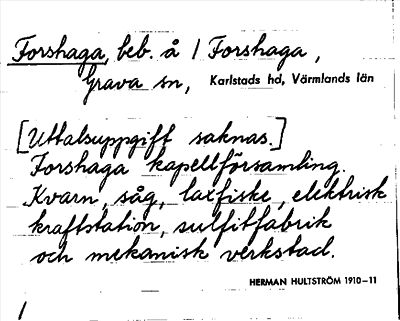 Forshaga, beb. å 1 Forshaga,
Grava sn, Karlstads hd, Värmlands län
[Uttalsuppgift saknas.]
Forshaga kapellförsamling.
Kvarn, såg, laxfiske, elektrisk
kraftstation, sulfitfabrik
och mekanisk verkstad.
HERMAN HULTSTRÖM 1910–11